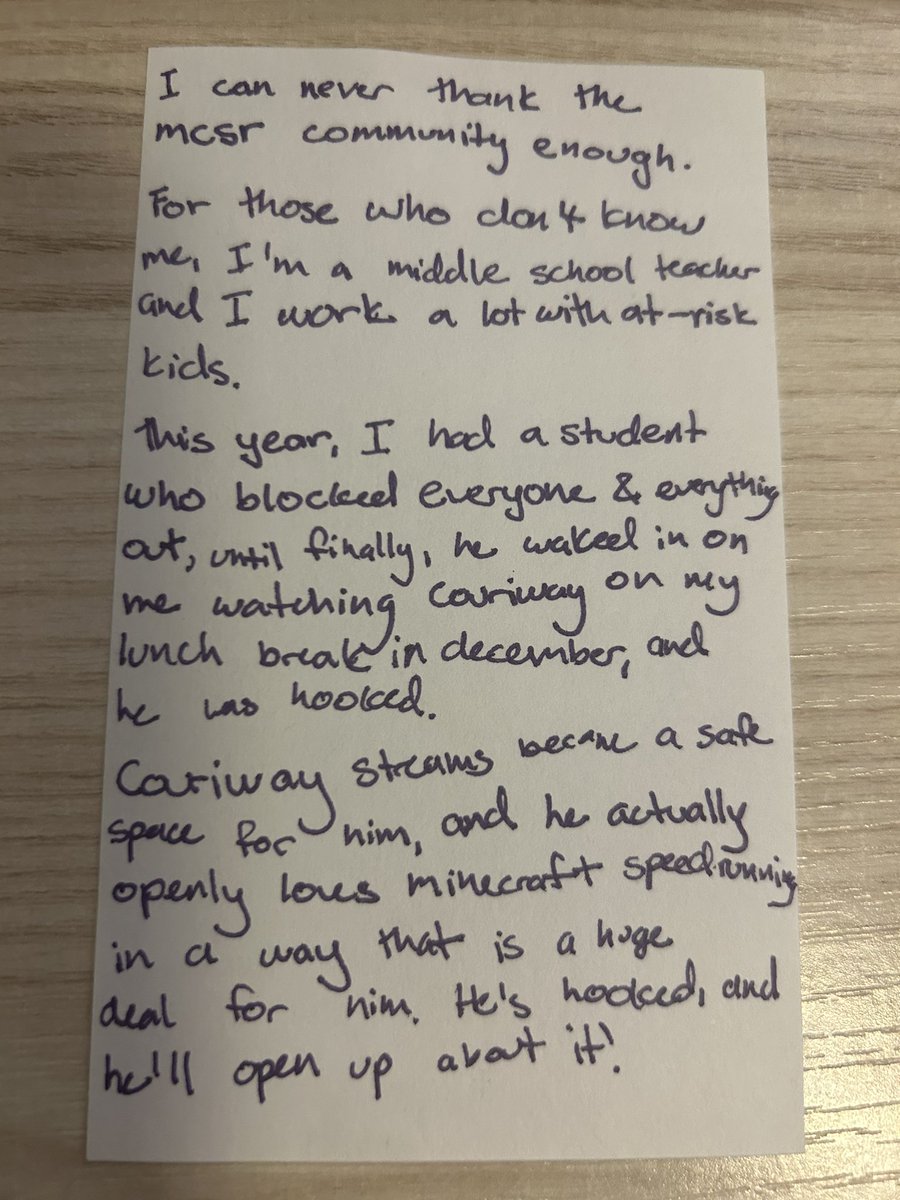 I can never thank the
mcsr community enough.
For those who don't know
me, I'm a middle school teacher
and I work a lot with at-risk
kids.
This year, I had a student
who blocked everyone & everything
out, until finally, he waked in on
me watching Couriway on my
lunch break in december, and
he was hooked.
Couriway streams became a safe
space for him, and he actually
openly loves minecraft speedrunning
in a way that is a huge
deal for him. He's hooked, and
he'll open up about it!